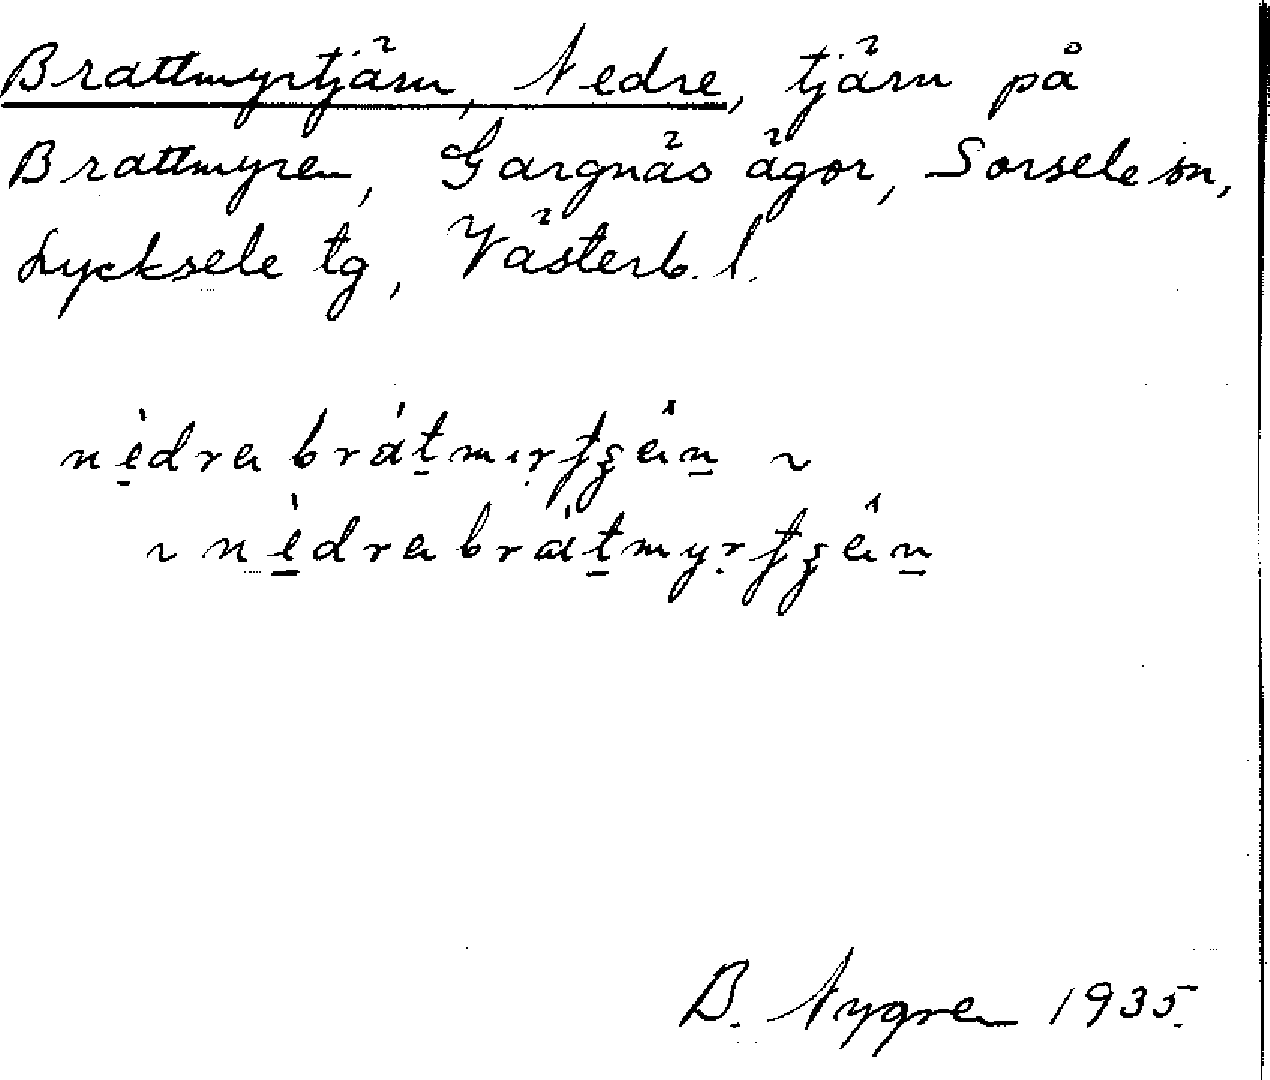 Brattmyrtjärn, Nedre, tjärn på
Brattmyren, Gargnäs ägor, Sorsele sn,
Lycksele tg, Västerb. l.
nèdra brátmırʈʂân ~
~ nèdra brátmyrʈʂân
B. Nygren 1935.